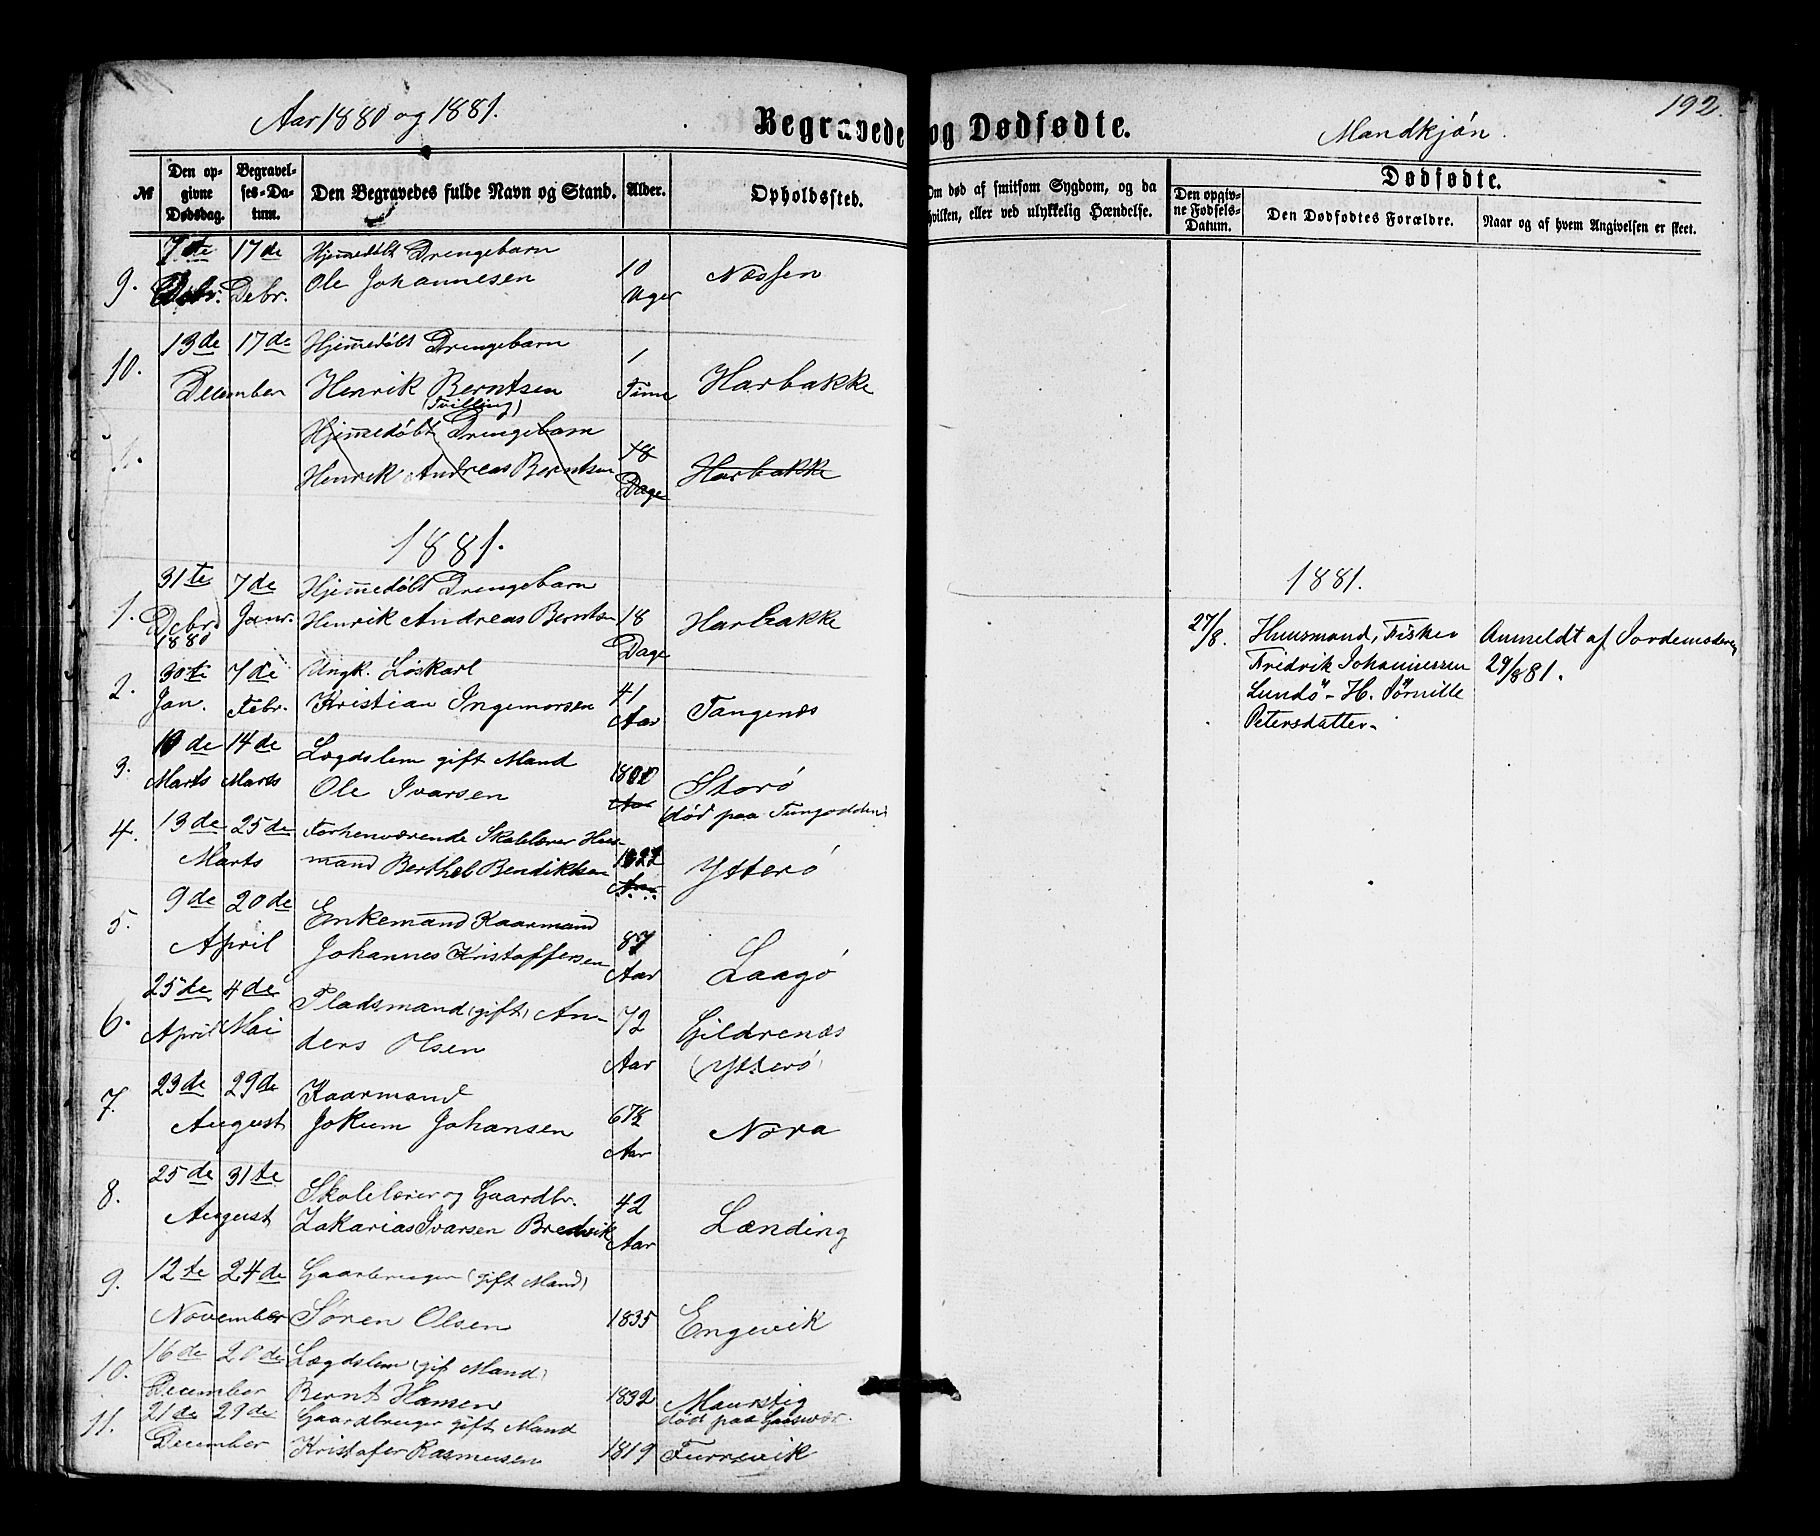 Aar 1880 og 1881.
Begravede og Dødfødte.
Mandkjøn.
192.
№
Den opgivne Dødsdag.
Begravelses-Datum.
Den Begravedes fulde Navn og Stand.
Alder.
Opholdssted.
Om død af smitsom Sygdom, og da hvilken, eller ved ulykkelig Hændelse.
Dødfødte.
Den opgivne Fødsels-Datum.
Den Dødfødtes Forældre.
Naar og af hvem Angivelsen er skeet.
9. 7de Debr. 17de Debr. Hjemmedøbt Drengebarn
Ole Johannesen 10 Uger Næssen
10. 13de 17de December Hjemmedøbt Drengebarn
Henrik Berntsen (Tvilling) 1 Time Harbakke
11. Hjemmedøbt Drengebarn
Henrik Andreas Berntsen 18 Dage Harbakke
1881.
1. 31te Debr. 1880 7de Janr. Hjemmedøbt Drengebarn
Henrik Andreas Berntsen 18 Dage Harbakke
2. 30te Jan. 7de Febr. Ungk. Løskarl
Kristian Ingemorsen 41 Aar Tangenæs
3. 10de Marts 14de Marts Lægdslem gift Mand
Ole Ivarsen 1800 Aar Storø
(død paa Tungodden)
4. 13de 25de Marts Forhenværende Skolelærer Huus-
mand Berthel Bendiktsen 1822 Aar. Ytterø
5. 9de 20de April Enkemand Kaarmand
Johannes Kristoffersen 87 Aar Laagø
6. 25de April 4de Mai Pladsmand (gift) An-
ders Olsen 72 Aar Gildrenæs
(Ytterø)
7. 23de 29de August Kaarmand
Jokum Johansen 67½ Aar Nora
8. 25de 31te August Skolelærer og Gaardbr.
Zakarias Ivarsen Bredvik 42 Aar Lænding
9. 12te 24de November Gaarbruger (gift Mand)
Søren Olsen 1835 Engevik
10. 16de 20de December Lægdslem (gif Mand)
Bernt Hansen 1832 Maurstig
død paa Gaasvær.
11. 21de 29de December Gaardbruger gift Mand
Kristofer Rasmusen 1819 Furrevik
1881.
27/8. Huusmand, Fisker
Fredrik Johannessen
Lundö - H. Pörnille
Petersdatter
Anmeldt af Jordemoderen
29/8 81.